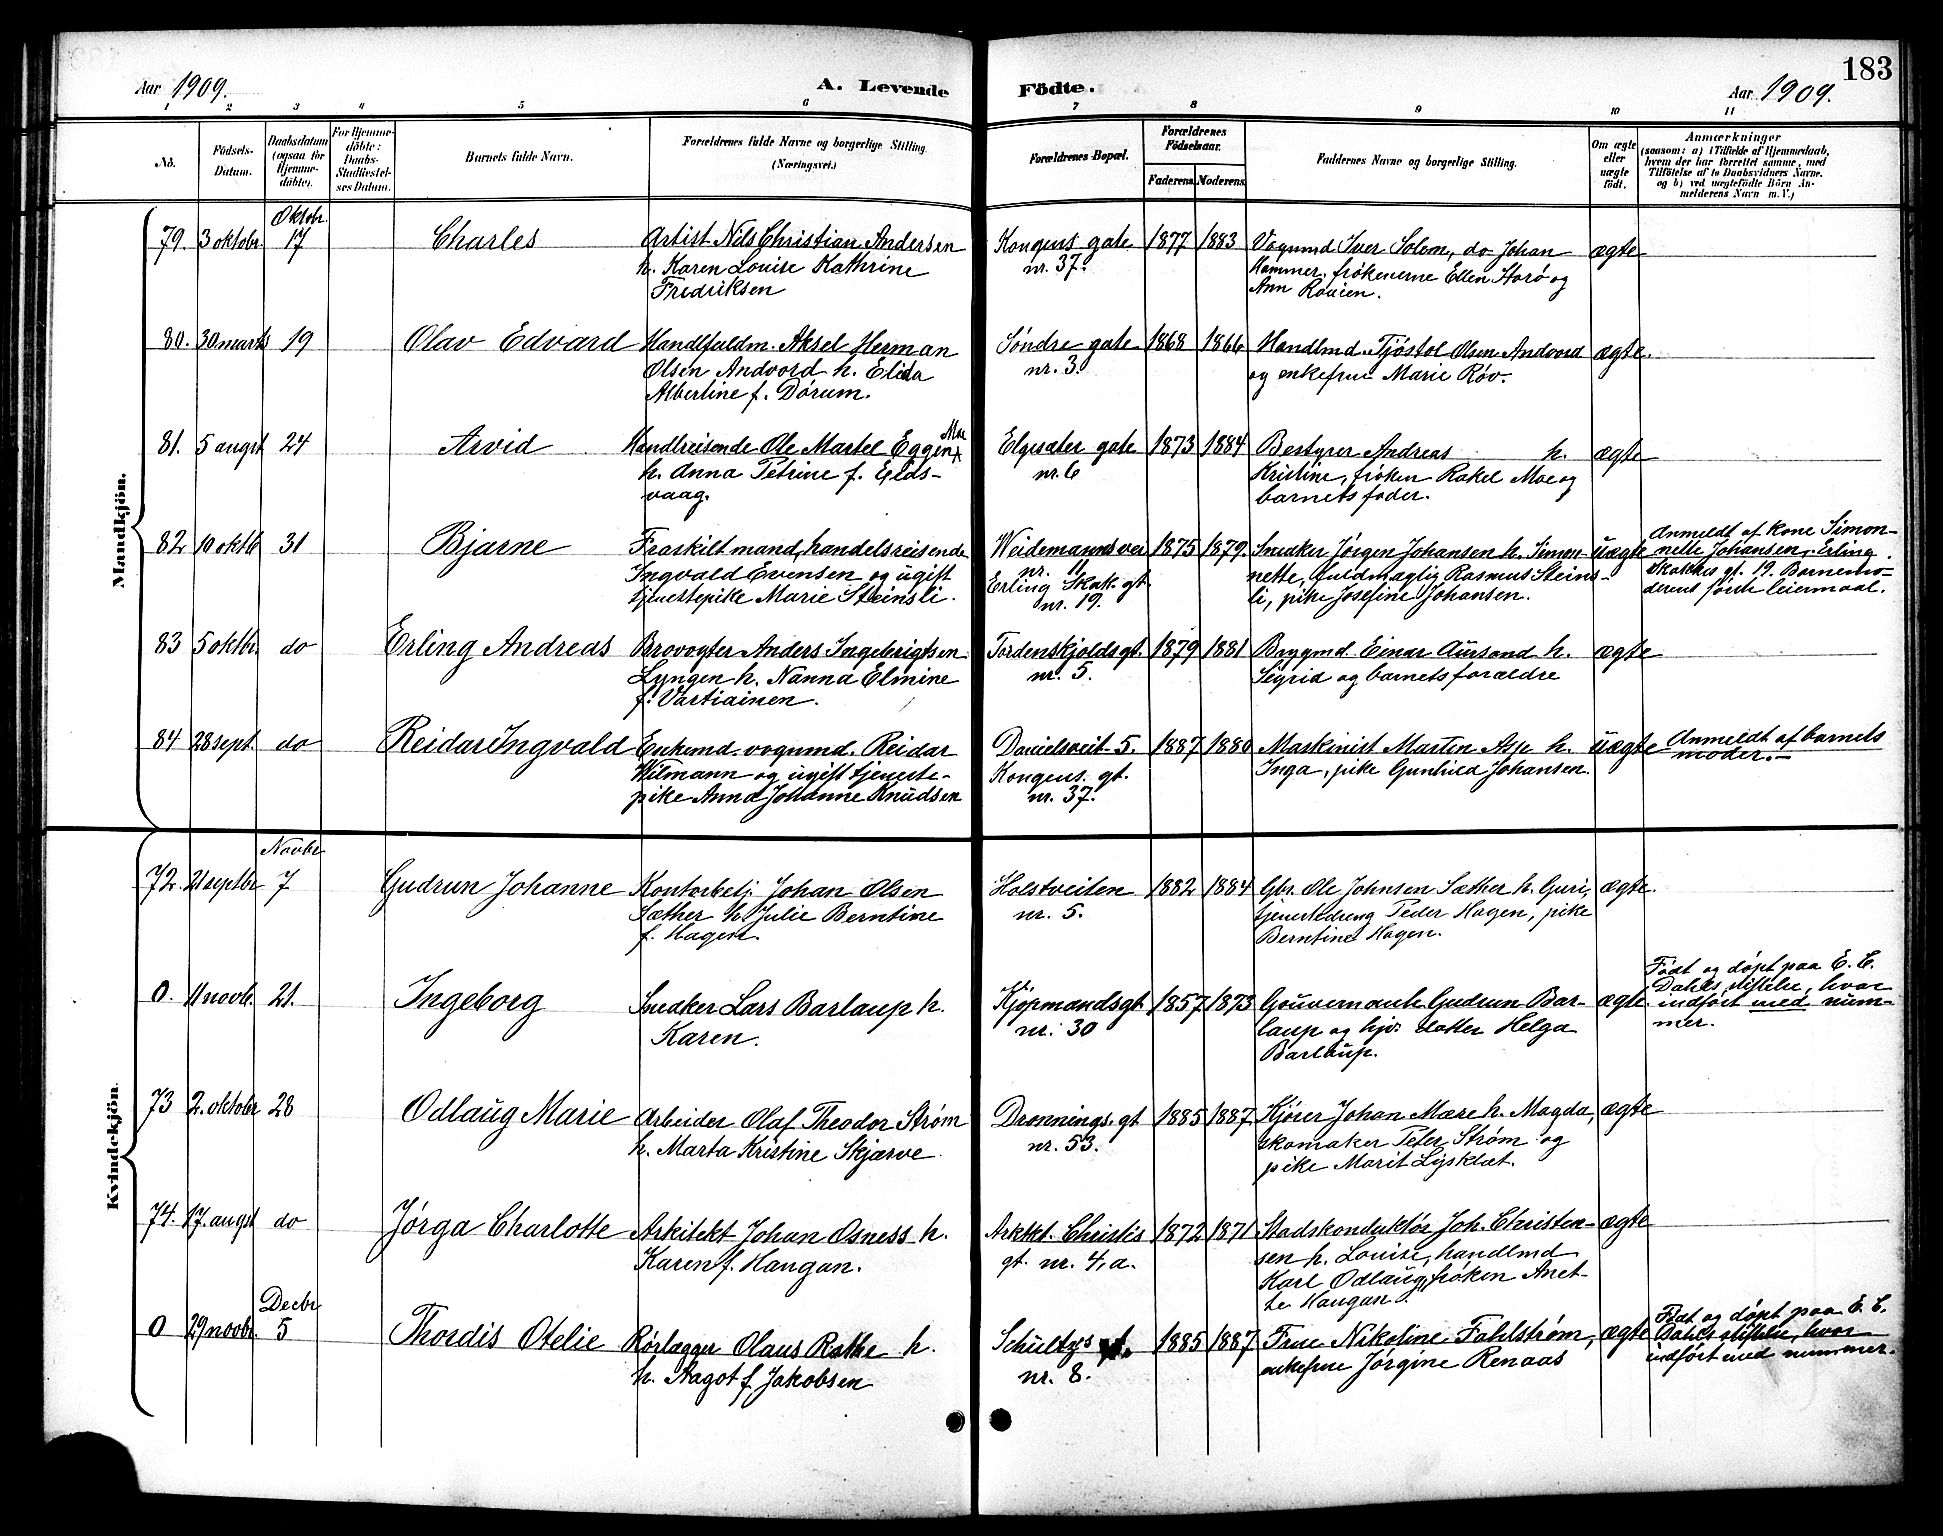 183
Aar 1909.
A. Levende Födte.
Aar 1909.
1 2 3 4 5 6 7 8 9 10 11
No.
Födsels-
Datum.
Daabsdatum
(ogsaa for
Hjemme-
döbte).
For Hjemme-
döbte:
Daabs-
Stadfæstel-
ses Datum.
Barnets fulde Navn.
Forældrenes fulde Navne og borgerlige Stilling
(Næringsvei.)
Forældrenes Bopæl.
Forældrenes
Födselsaar.
Faderens. Moderens.
Faddernes Navne og borgerlige Stilling.
Om ægte
eller
uægte
født.
Anmærkninger
(saasom: a) i Tilfælde af Hjemmedaab,
hvem der har forrettet samme, med
Tilföielse af to Daabsvidners Navne.
og b) ved uægtefödte Börn An-
melderens Navn m. V.)
Mandkjön.
Oktobr.
79. 3 oktobr. 17 Charles
Artist Nils Christian Andersen
h. Karen Louise Kathrine
Fredriksen
Kongens gate
nr. 37.
1877 1883
Vognmd Iver Solem, do Johan
Hammer, frökenerne Ellen Storö og
Ann
ægte
80. 30 marts 19 Olav Edvard
Handlfuldm. Aksel Herman
Olsen Andvord h. Elida
Albertine f. Dórum.
Sóndre gate
nr. 3.
1868 1866
Handlmd Tjóstol Olsen Andvord
og enkefrue Marie Róv.
ægte.
81. 5 augst 24 Arvid
Handlreisende Ole Martel Eggen Moe
h. Anna Petrine f. Elds-
vaag.
Elgesæter gate
nr. 6
1873 1884
Bestyrer Andreas h.
Kristine, fröken Rakel Moe og
barnets fader.
ægte
82 10 oktb 31 Bjarne
Fraskilt mand, handelsreisende
Ingvald Evensen og ugift
tjenestepike Marie Steinsli.
Weidemannsvei
nr. 11
Erling Skak. gt.
nr. 19.
1875 1879.
Snekker Jórgen Johansen h. Simon-
nette, fuldmægtig Rasmus Steins-
li, pike Josefine Johansen.
uægte
Anmeldt af kone Simon-
nette Johansen, Erling
Skakkes gt. 19. Barnemo-
derens förste leiermaal.
83 5 oktbr. do Erling Andreas
Brovogter Anders Ingebrigtsen
Lyngen h. Nanna Elmine
f. Vartiainen.
Tordenskjoldsgt.
nr. 5.
1879 1881
Brygmd. Einar Aursand h.
Sigrid og barnets forældre
ægte
84 28 sept. do Reidar Ingvald
Enkemd. vognmd. Reidar
Wilmann og ugift tjeneste-
pike Anna Johanne Knudsen
Danielsveit 5.
Kongens gt.
nr. 37.
1887 1880
Maskinist Marten Asp h.
Inga, pike Gunhild Johansen.
uægte
Anmeldt af barnets
moder.
Kvindekjön.
Novbr
72. 21 septbr 7 Gudrun Johanne
Kontorbetj. Johan Olsen
Sæther h. Julie Berntine
f. Hagen.
Holstveiten
nr. 5.
1882 1884
Gbr. Ole Johnsen Sæther h. Guri,
tjenestedreng Peder Hagen, pike
Berntine Hagen.
ægte.
0. 11 novb. 21. Ingeborg
Snekker Lars Barlaup h.
Karen.
Kjöpmandsgt
nr. 30
1857 1873
Gouvernante Gudrun Bar-
laup og hjv. datter Helga
Barlaup.
ægte.
Födt og döpt paa E. C.
Dahls stiftelse, hvor
indført med num-
mer.
73 2. oktobr 28 Odlaug Marie
Arbeider Olaf Theodor Strøm
h. Marta Kristine Skjærve
Dronnings. gt
nr. 53.
1885 1887.
Kjører Johan Mære h. Magda,
skomaker Peter Strøm og
pike Marit Lysklæt.
ægte
74. 17. augst do Jórga Charlotte
Arkitekt Johan Osness h.
Karen f. Haugan.
Arktkt. Christis
gt. nr. 4, a.
1872 1871
Stadskonduktör Joh. Christen-
sen h. Louise, handlmd
Karl Odlaug, fröken Anet-
te Haugan.
ægte
Decbr
0 29 novbr. 5 Thordis Otelie
Rörlægger Olaus Rothe h.
h. Aagot f. Jakobsen
Schultzs gt.
nr. 8.
1885 1887
Frue Nikoline Fahlstrøm,
enkefrue Jórgine Renaas
ægte
Födt og döpt paa E. C.
Dahls stiftelse, hvor
indfört med nummer.